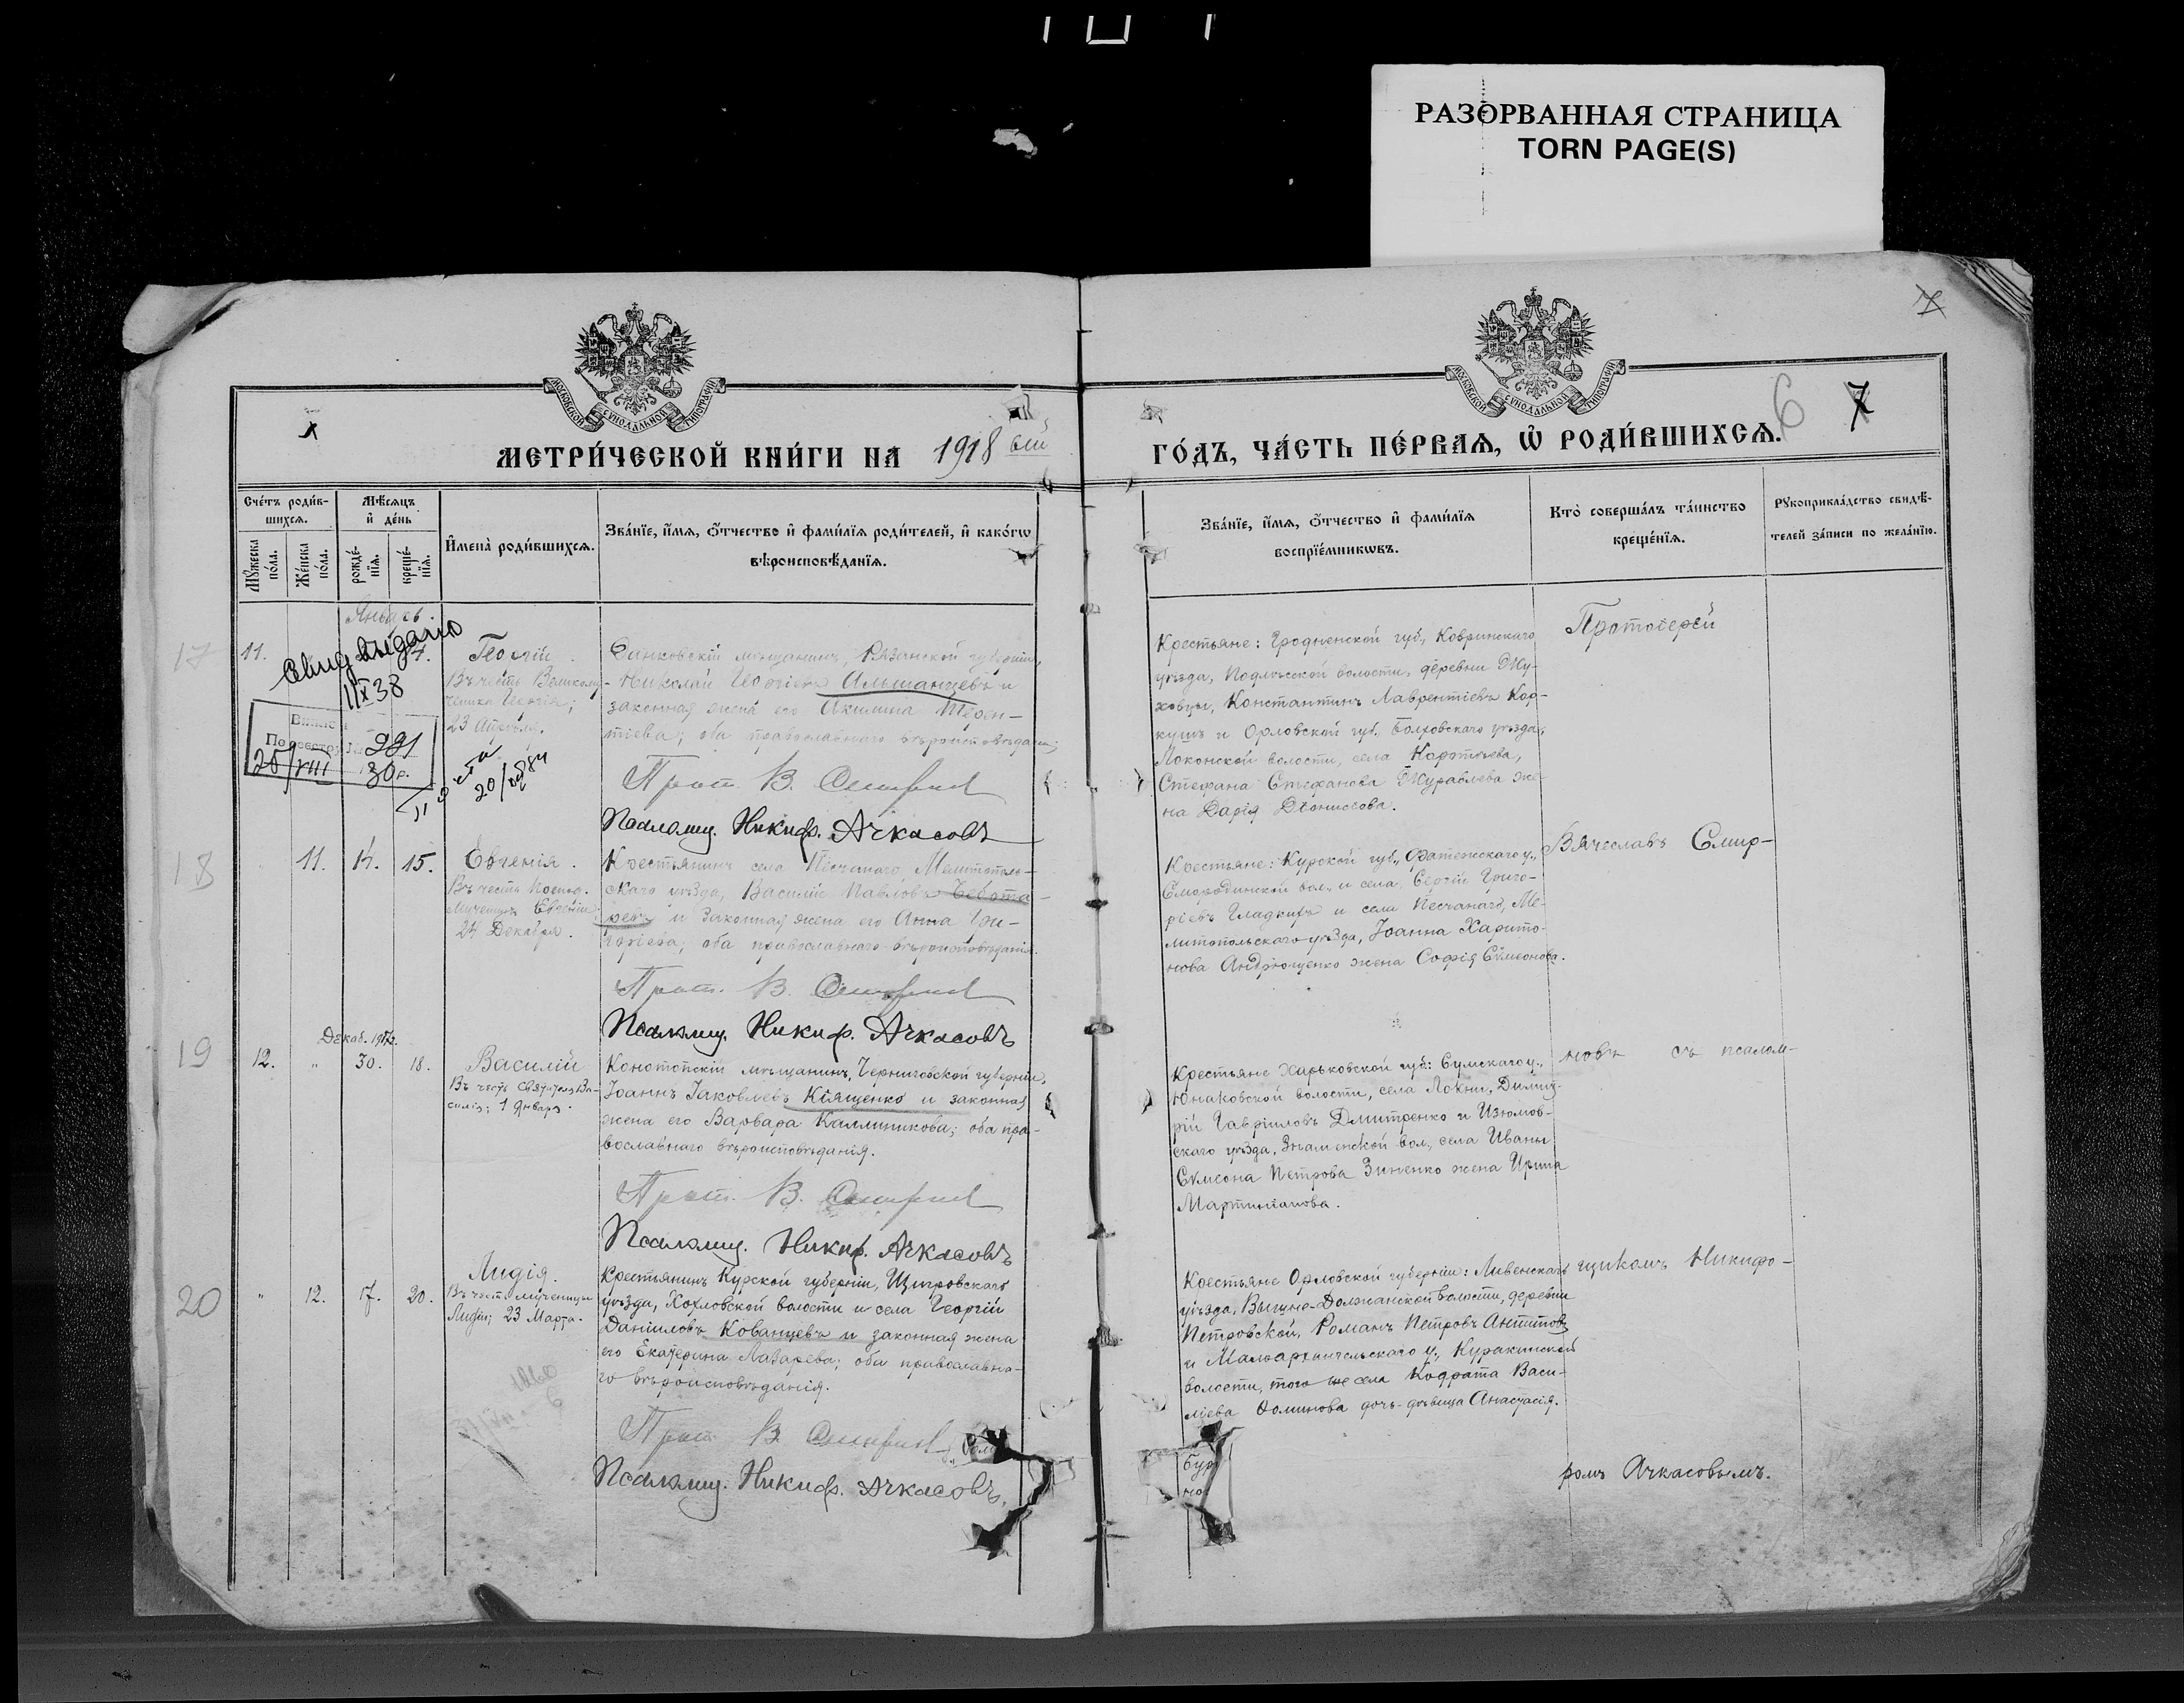 РАЗОРВАННАЯ СТРАНИЦА
TORN PAGE(S)
7
МОСКОВСКОЙ СУНОДАЛЬНОЙ ТИПОГРАФІИ
МОСКОВСКОЙ СУНОДАЛЬНОЙ ТИПОГРАФІИ
6 7
МЕТРИ́ЧЕСКОЙ КНИ́ГИ НА 1918 ый
ГО́ДЪ, ЧА́СТЬ ПЕ́РВАЯ, Ѡ҆ РОДИ́ВШИХСѦ.
Сче́тъ роди́в-
шихсѧ.
Мѣ́сѧцъ
и҆ де́нь
Мꙋ́жеска по́ла.
Же́нска по́ла.
рожде́-
нїѧ.
креще́-
нїѧ.
И҆мена̀ роди́вшихсѧ.
Зва́нїе, и҆́мѧ, ѻ҆́тчество и҆ фами́лїѧ роди́телей, и҆ како́гѡ
вѣроисповѣ́данїѧ.
Зва́нїе, и҆́мѧ, ѻ҆́тчество и҆ фами́лїѧ
воспрїе́мникѡвъ.
Кто̀ соверша́лъ та́инство
креще́нїѧ.
Рꙋкоприкла́дство свидѣ́-
телей за́писи по жела́нїю.
Январь.
17
11.
Свид выдано
11 IX 38
Георгій.
Въ честь Великому-
ченика Георгія;
23 Апрѣля.
291
25/VIII 30 г.
Данковскій мѣщанинъ, Рязанской губерніи,
Николай Георгіевъ Альшанцевъ и
законная жена его Акилина Терен-
тіева; оба православнаго вѣроисповѣданія;
Прот. В. Смирнов
Псаломщ. Никиф. Ачкасовъ
Крестьяне: Гродненской губ., Кобринскаго
уѣзда, Подлѣсской волости, деревни Жу-
ховцы, Константинъ Лаврентіевъ Кор-
кушъ и Орловской губ. Болховскаго уѣзда,
Локонской волости, села
Стефана Стефанова Журавлева же-
на Дарія Діонисова.
Протоіерей
18
11. 14. 15.
Евгенія.
Въ честь Препод.
Мученицы Евгеніи;
24 Декабря.
Крестьянинъ села Песчанаго, Мелитополь-
скаго уѣзда, Василій Павловъ Чебота-
ревъ и законная жена его Анна Гри-
горіева; оба православнаго вѣроисповѣданія.
Прот. В. Смирнов
Псаломщ. Никиф. Ачкасовъ
Крестьяне: Курской губ., Фатежскаго у.,
Смородинской вол., и села, Сергій Григо-
ріевъ Гладкихъ и села Песчанаго, Ме-
литопольскаго уѣзда, Іоанна Харито-
нова Андрющенко жена Софія Симеонова.
Вячеславъ Смир-
19
Декаб. 1917 г.
12. " 30. 18.
Василій
Въ честь Святителя Ва-
силія; 1 Января.
Конотопскій мѣщанинъ, Черниговской губерніи,
Іоаннъ Іаковлевъ Кіященко и законная
жена его Варвара Каллиникова; оба пра-
вославнаго вѣроисповѣданія.
Прот. В. Смирнов
Псаломщ. Никиф. Ачкасовъ
Крестьяне Харьковской губ: Сумскаго у.,
Юнаковской волости, села Локни, Димит-
рій Гавріиловъ Дмитренко и Изюмов-
скаго уѣзда, Знаменской вол., села Иваны
Симеона Петрова Зиненко жена Ирина
Мартиніанова.
новъ съ псалом-
20
" 12. 17. 20.
Лидія.
Въ честь мученицы
Лидіи; 23 Марта.
Крестьянинъ Курской губерніи, Щигровскаго
уѣзда, Хохловской волости и села Георгій
Даніиловъ Кованцевъ и законная жена
его Екатерина Лазарева; оба православна-
го вѣроисповѣданія.
Прот. В. Смирнов
Псаломщ. Никиф. Ачкасовъ
Крестьяне Орловской губерніи: Ливенскаго
уѣзда, Вышне-Должанской волости, деревни
Петровской, Романъ Петровъ Антиповъ
и Малоархангельскаго у., Куракинской
волости, того же села Кодрата Васи-
ліева Фоминова дочь-дѣвица Анастасія.
щикомъ Никифо-
ромъ Ачкасовымъ.